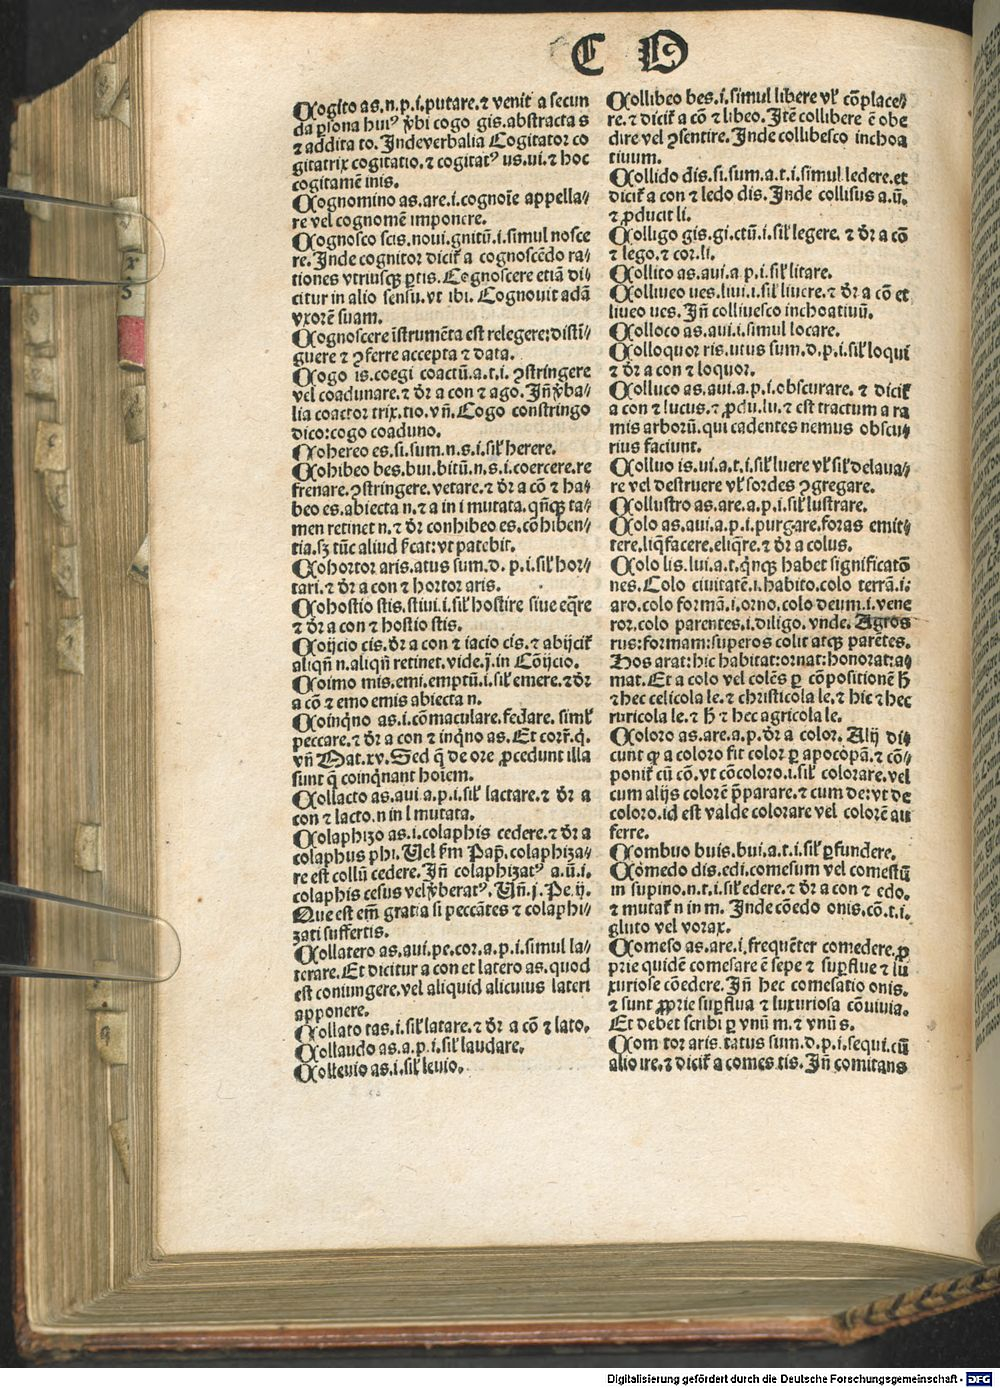 C O
Cogito as.n.p.i.putare.⁊ venit a secun
da ꝑsona huiꝰ v̓bi cogo gis.abstracta s
⁊ addita to. Indeverbalia Cogitator co
gitatrix cogitatio.⁊ cogitatꝰ us.ui.⁊ hoc
cogitamē inis.
Cognomino as.are.i.cognoīe appella⸗
re vel cognomē imponere.
Cognosco scis.noui.gnitū.i.simul nosce
re. Inde cognitor diciť a cognoscēdo ra⸗
tiones vtriusqꝫ ꝑtis. Cognoscere etiā di⸗
citur in alio sensu.vt ibi. Cognouit adā
vxorē suam.
Cognoscere īstrumēta est relegere:distī⸗
guere ⁊ ꝯferre accepta ⁊ data.
Cogo is.coegi coactū.a.t.i.ꝯstringere
vel coadunare.⁊ dr̄ a con ⁊ ago. Jn̄ v̓ba⸗
lia coactor trix.tio.vn̄. Cogo constringo
dico:cogo coaduno.
Cohereo es.si.sum.n.s.i.siľ herere.
Cohibeo bes.bui.bitū.n.s.i.coercere.re
frenare.ꝯstringere.vetare.⁊ dr̄ a cō ⁊ ha⸗
beo es.abiecta n.⁊ a in i mutata.qn̄qꝫ ta⸗
men retinet n.⁊ dr̄ conhibeo es.cōhiben⸗
tia.sꝫ tūc aliud sc̄at:vt patebit.
Cohortor aris.atus sum.d. p.i.siľ hor⸗
tari.⁊ dr̄ a con ⁊ hortor aris.
Cohostio stis.stiui.i.siľ hostire siue eq̄re
⁊ dr̄ a con ⁊ hostio stis.
Coijcio cis.dr̄ a con ⁊ iacio cis.⁊ abijciť
aliqn̄ n.aliqn̄ retinet.vide.j.in Cōijcio.
Coimo mis.emi.emptū.i.siľ emere.⁊ dr̄
a cō ⁊ emo emis abiecta n.
Coinqͥno as.i.cōmaculare.fedare. simľ
peccare.⁊ dr̄ a con ⁊ inqͥno as. Et corr̄.q.
vn̄ Mat.xv. Sed q̄ de ore ꝓcedunt illa
sunt q̄ coinqͥnant hoīem.
Collacto as.aui a.p.i.siľ lactare.⁊ dr̄ a
con ⁊ lacto.n in l mutata.
Colaphizo as.i.colaphis cedere.⁊ dr̄ a
colaphus phi. Vel sm̄ Pap̄.colaphiza⸗
re est collū cedere. Jn̄ colaphizatꝰ a.ū.i.
colaphis cesus vel v̓beratꝰ. Vn̄.j.Pe.ij.
Que est em̄ gratia si peccātes ⁊ colaphi⸗
zati suffertis.
Collatero as.aui.pe.cor.a.p.i.simul la⸗
terare. Et dicitur a con et latero as.quod
est coniungere.vel aliquid alicuius lateri
apponere.
Collato tas.i.siľ latare.⁊ dr̄ a cō ⁊ lato.
Collaudo as.a.p.i.siľ laudare.
Colleuio as.i.siľ leuio.
Collibeo bes.i.simul libere vľ cōplace⸗
re.⁊ diciť a cō ⁊ libeo. Itē collibere ē obe
dire vel ꝯsentire. Inde collibesco inchoa
tiuum.
Collido dis.si.sum.a.t.i.simul ledere.et
diciť a con ⁊ ledo dis. Inde collisus a.ū.
⁊ ꝓducit li.
Colligo gis.gi.ctū.i.siľ legere. ⁊ dr̄ a cō
⁊ lego.⁊ cor.li.
Collito as.aui.a p.i.siľ litare.
Colliueo ues.liui.i.siľ liuere.⁊ dr̄ a cō et
liueo ues. Jn̄ colliuesco inchoatiuū.
Colloco as.aui.i.simul locare.
Colloquor ris.utus sum.d.p.i.siľ loqui
⁊ dr̄ a con ⁊ loquor.
Colluco as.aui.a.p.i.obscurare. ⁊ diciť
a con ⁊ lucus.⁊ ꝓdu.lu.⁊ est tractum a ra
mis arborū.qui cadentes nemus obscu⸗
rius faciunt.
Colluo is.ui.a.t.i.siľ luere vľ siľ delaua⸗
re vel destruere vľ sordes ꝯgregare.
Collustro as.are.a.p.i.siľ lustrare.
Colo as.aui.a.p.i.purgare.foras emit⸗
tere.liq̄facere.eliq̄re.⁊ dr̄ a colus.
Colo lis.lui.a.t.qͥnqꝫ habet significatō
nes. Colo ciuitatē.i.habito.colo terrā.i:
aro.colo formā.i.orno.colo deum.i.vene
ror.colo parentes.i.diligo. vnde. Agros
rus:formam:superos colit atqꝫ parētes.
Hos arat:hic habitat:ornat:honorat:a⸗
mat. Et a colo vel colēs ꝑ cōpositionē ħ
⁊ hec celicola le.⁊ christicola le.⁊ hic ⁊ hec
ruricola le.⁊ ħ ⁊ hec agricola le.
Coloro as.are.a.p.dr̄ a color. Alij di⸗
cunt ꝙ a coloro fit color ꝑ apocopā.⁊ cō⸗
poniť cū cō.vt cōcoloro.i.siľ colorare.vel
cum alijs colorē p̄parare.⁊ cum de:vt de
coloro.id est valde colorare vel colorē au
ferre.
Combuo buis.bui.a.t.i.siľ ꝑfundere.
Comedo dis.edi.comesum vel comestū
in supino.n.t.i.siľ edere.⁊ dr̄ a con ⁊ edo.
⁊ mutať n in m. Inde cōedo onis.cō.t.i.
gluto vel vorax.
Comeso as.are.i.frequēter comedere.ꝓ
prie quidē comesare ē sepe ⁊ suꝑflue ⁊ lu
xuriose cōedere. Jn̄ hec comesatio onis.
⁊ sunt ꝓprie suꝑflua ⁊ luxuriosa cōuiuia.
Et debet scribi ꝑ vnū m.⁊ vnū s.
Com tor aris.tatus sum.d.p.i.sequi.cū
alio ire.⁊ diciť a comes tis. Jn̄ comitans
Digitalisierung gefördert durch die Deutsche Forschungsgemeinschaft - DFG